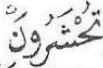 تُحْشَرُونَ